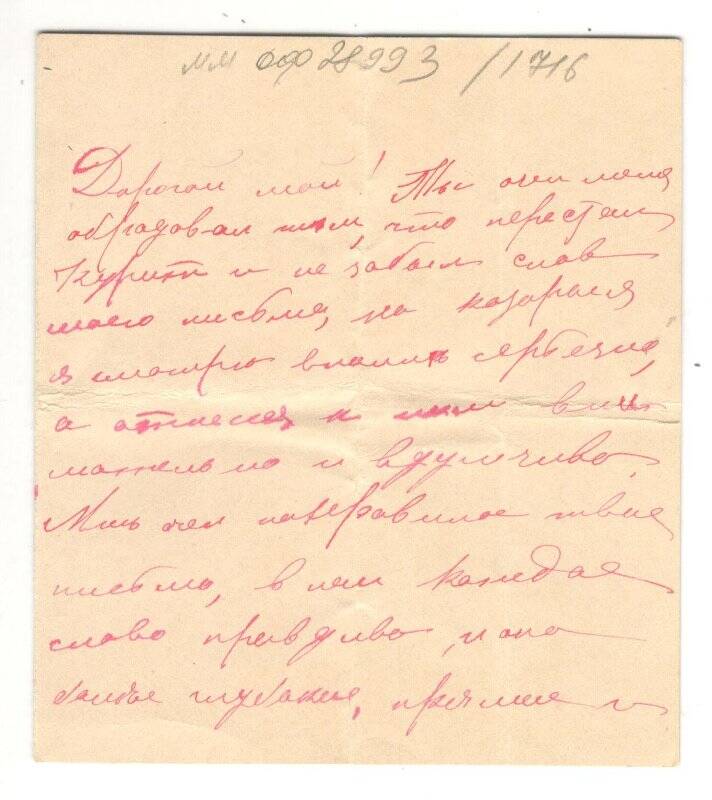 ММ ОФ 28993/1716
Дорогой мой! Ты очен меня
обрадовал тем, что перестал
курить и не забыл слов
моего письма, на которыя
я смотрю вполнъ серьезно,
а отнесся к ним вни
мательно и вдумчиво.
Мнъ очен понравилос твое
письмо, в нем каждое
слово правдиво, и оно
более глубокое, прямое и